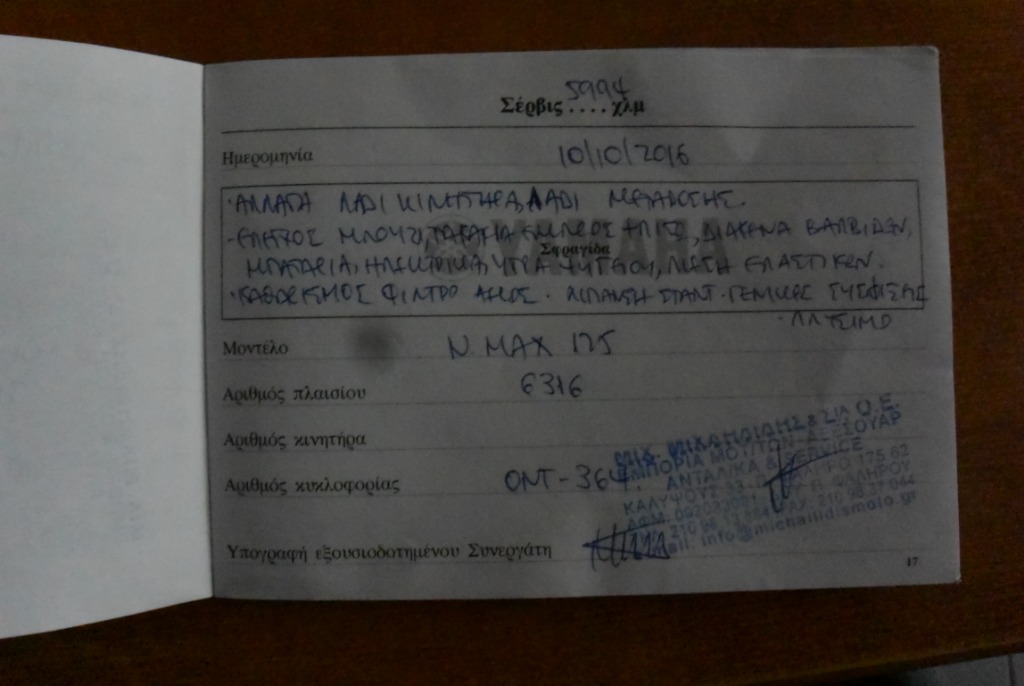 5994
Σέρβις .... χλμ
Ημερομηνία 10/10/2016
·ΑΛΛΑΓΗ ΛΑΔΙ ΚΙΝΗΤΗΡΑ, ΛΑΔΙ ΜΕΤΑΔΟΣΗΣ.
YAMAHA
-ΕΛΕΓΧΟΣ ΜΠΟΥΖΙ, ΤΑΚΑΚΙΑ ΕΜΠΡΟΣ +ΠΙΣΩ, ΔΙΑΚΕΝΑ ΒΑΛΒΙΔΩΝ,
Σφραγίδα
ΜΠΑΤΑΡΙΑ, ΗΛΕΚΤΡΙΚΑ, ΥΓΡΑ ΨΥΓΕΙΟΥ, ΠΙΕΣΗ ΕΛΑΣΤΙΚΩΝ.
·ΚΑΘΑΡΙΣΜΟΣ ΦΙΛΤΡΟ ΑΕΡΟΣ · ΛΙΠΑΝΣΗ ΣΤΑΝΤ · ΓΕΝΙΚΕΣ ΣΥΣΦΙΞΕΙΣ
· ΠΛΥΣΙΜΟ
Μοντέλο N. MAX 125
Αριθμός πλαισίου 6316
Αριθμός κινητήρα
Αριθμός κυκλοφορίας ΟΝΤ-364
ΜΙΧ. ΜΙΧΑΗΛΙΔΗΣ & ΣΙΑ Ο.Ε.
ΕΜΠΟΡΙΑ ΜΟΤ/ΤΩΝ-ΑΞΕΣΟΥΑΡ
ΑΝΤΑΛ/ΚΑ & SERVICE
ΚΑΛΥΨΟΥΣ 33 ΦΑΛΗΡΟ 175 62
ΑΦΜ. Π. ΦΑΛΗΡΟΥ
FAX: 210 98.37.044
email: info@michailidismoto.gr
Υπογραφή εξουσιοδοτημένου Συνεργάτη
17